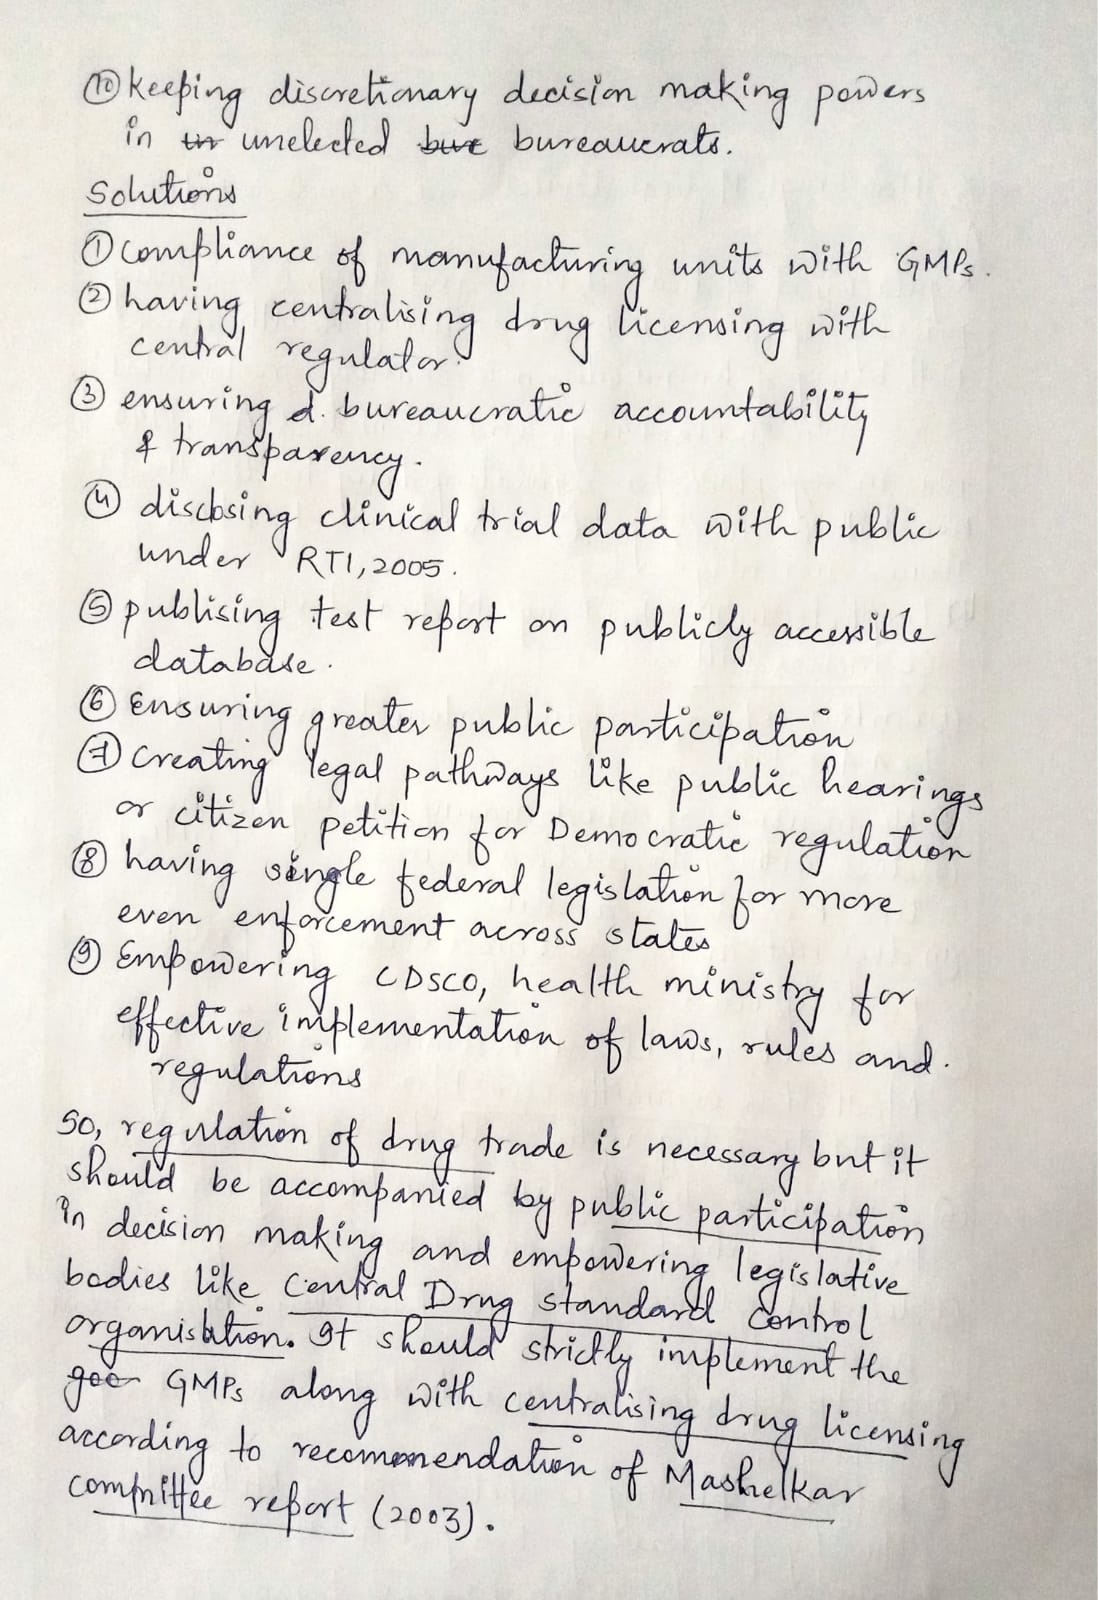 ⑩ keeping discretionary decision making powers
in un unelected bure bureaucrats.
Solutions
① compliance of manufacturing units with GMPs.
② having centralising drug licensing with
central regulator.
③ ensuring d. bureaucratic accountability
& transparency.
④ disclosing clinical trial data with public
under RTI, 2005.
⑤ publising test report on publicly accessible
database.
⑥ Ensuring greater public participation
⑦ Creating legal pathways like public hearings
or citizen petition for Democratic regulation
⑧ having single federal legislation for more
even enforcement across states
⑨ Empowering CDSCO, health ministry for
effective implementation of laws, rules and.
regulations
So, regulation of drug trade is necessary but it
should be accompanied by public participation
in decision making and empowering legislative
bodies like Central Drug standard Control
organisation. It should strictly implement the
goo GMPs along with centralising drug licensing
according to recommendation of Mashelkar
committee report (2003).